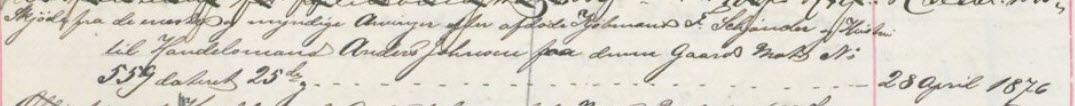 Skjøde fra de eneste og myndige Arvinger efter afdøde Kjøbmand F. Schjander og Hustru
til Handelsmand Anders Johnsen paa denne Gaard Matr No
559 dateret 25de 28 April 1876